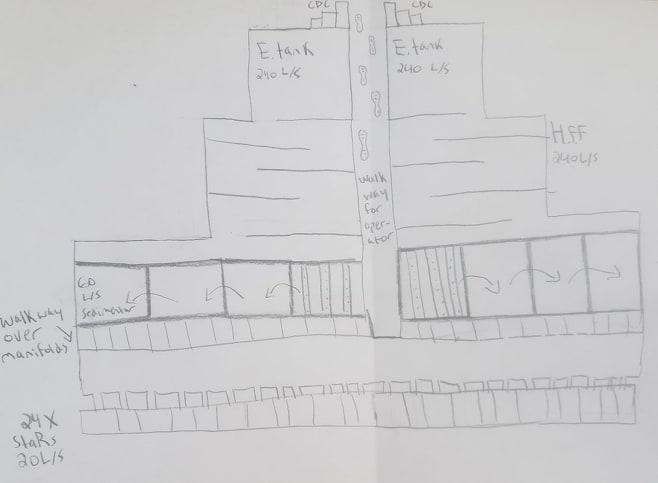 CDC
CDC
E.tank
240 L/S
E.tank
240 L/S
H.FF
240L/S
walk
way
for
oper-
ator
60
L/S
Sedimentor
walkway
over
manifolds
24X
StaRs
20L/S